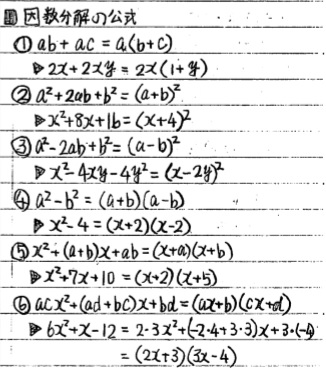 ■因数分解の公式
① ab + ac = a(b+c)
▶ 2x + 2xy = 2x(1+y)
② a²+2ab+b² = (a+b)²
▶ x²+8x+16 = (x+4)²
③ a²-2ab+b² = (a-b)²
▶ x²-4xy-4y² = (x-2y)²
④ a²-b² = (a+b)(a-b)
▶ x²-4 = (x+2)(x-2)
⑤ x²+(a+b)x+ab = (x+a)(x+b)
▶ x²+7x+10 = (x+2)(x+5)
⑥ acx²+(ad+bc)x+bd = (ax+b)(cx+d)
▶ 6x²+x-12 = 2・3x²+(-2・4+3・3)x+3・(-4)
= (2x+3)(3x-4)